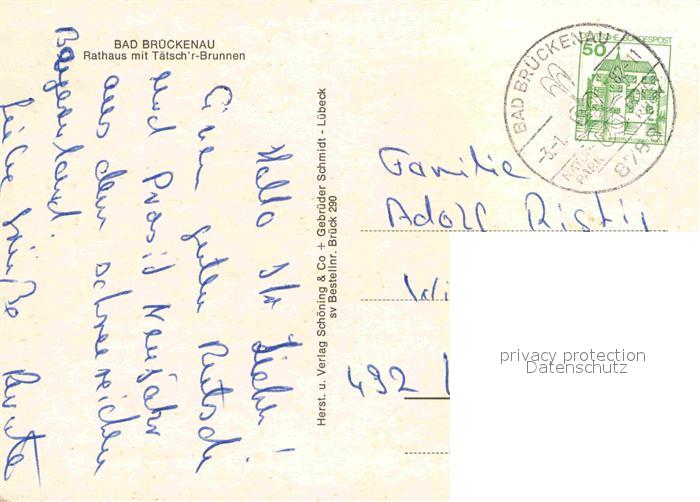 BAD BRÜCKENAU
Rathaus mit Tätsch'r-Brunnen
Hallo Ihr Lieben!
Einen guten Rutsch
und Prosit Neujahr
aus dem schneereichen
Bayernland.
Liebe Grüße Renate
Herst. u. Verlag Schöning & Co + Gebrüder Schmidt - Lübeck
sv Bestellnr. Brück 290
DEUTSCHE BUNDESPOST
50
BAD BRÜCKENAU
-3.-1. 82-11
NATUR-
PARK
8788
Familie
Adolf
Wi
492
privacy protection
Datenschutz